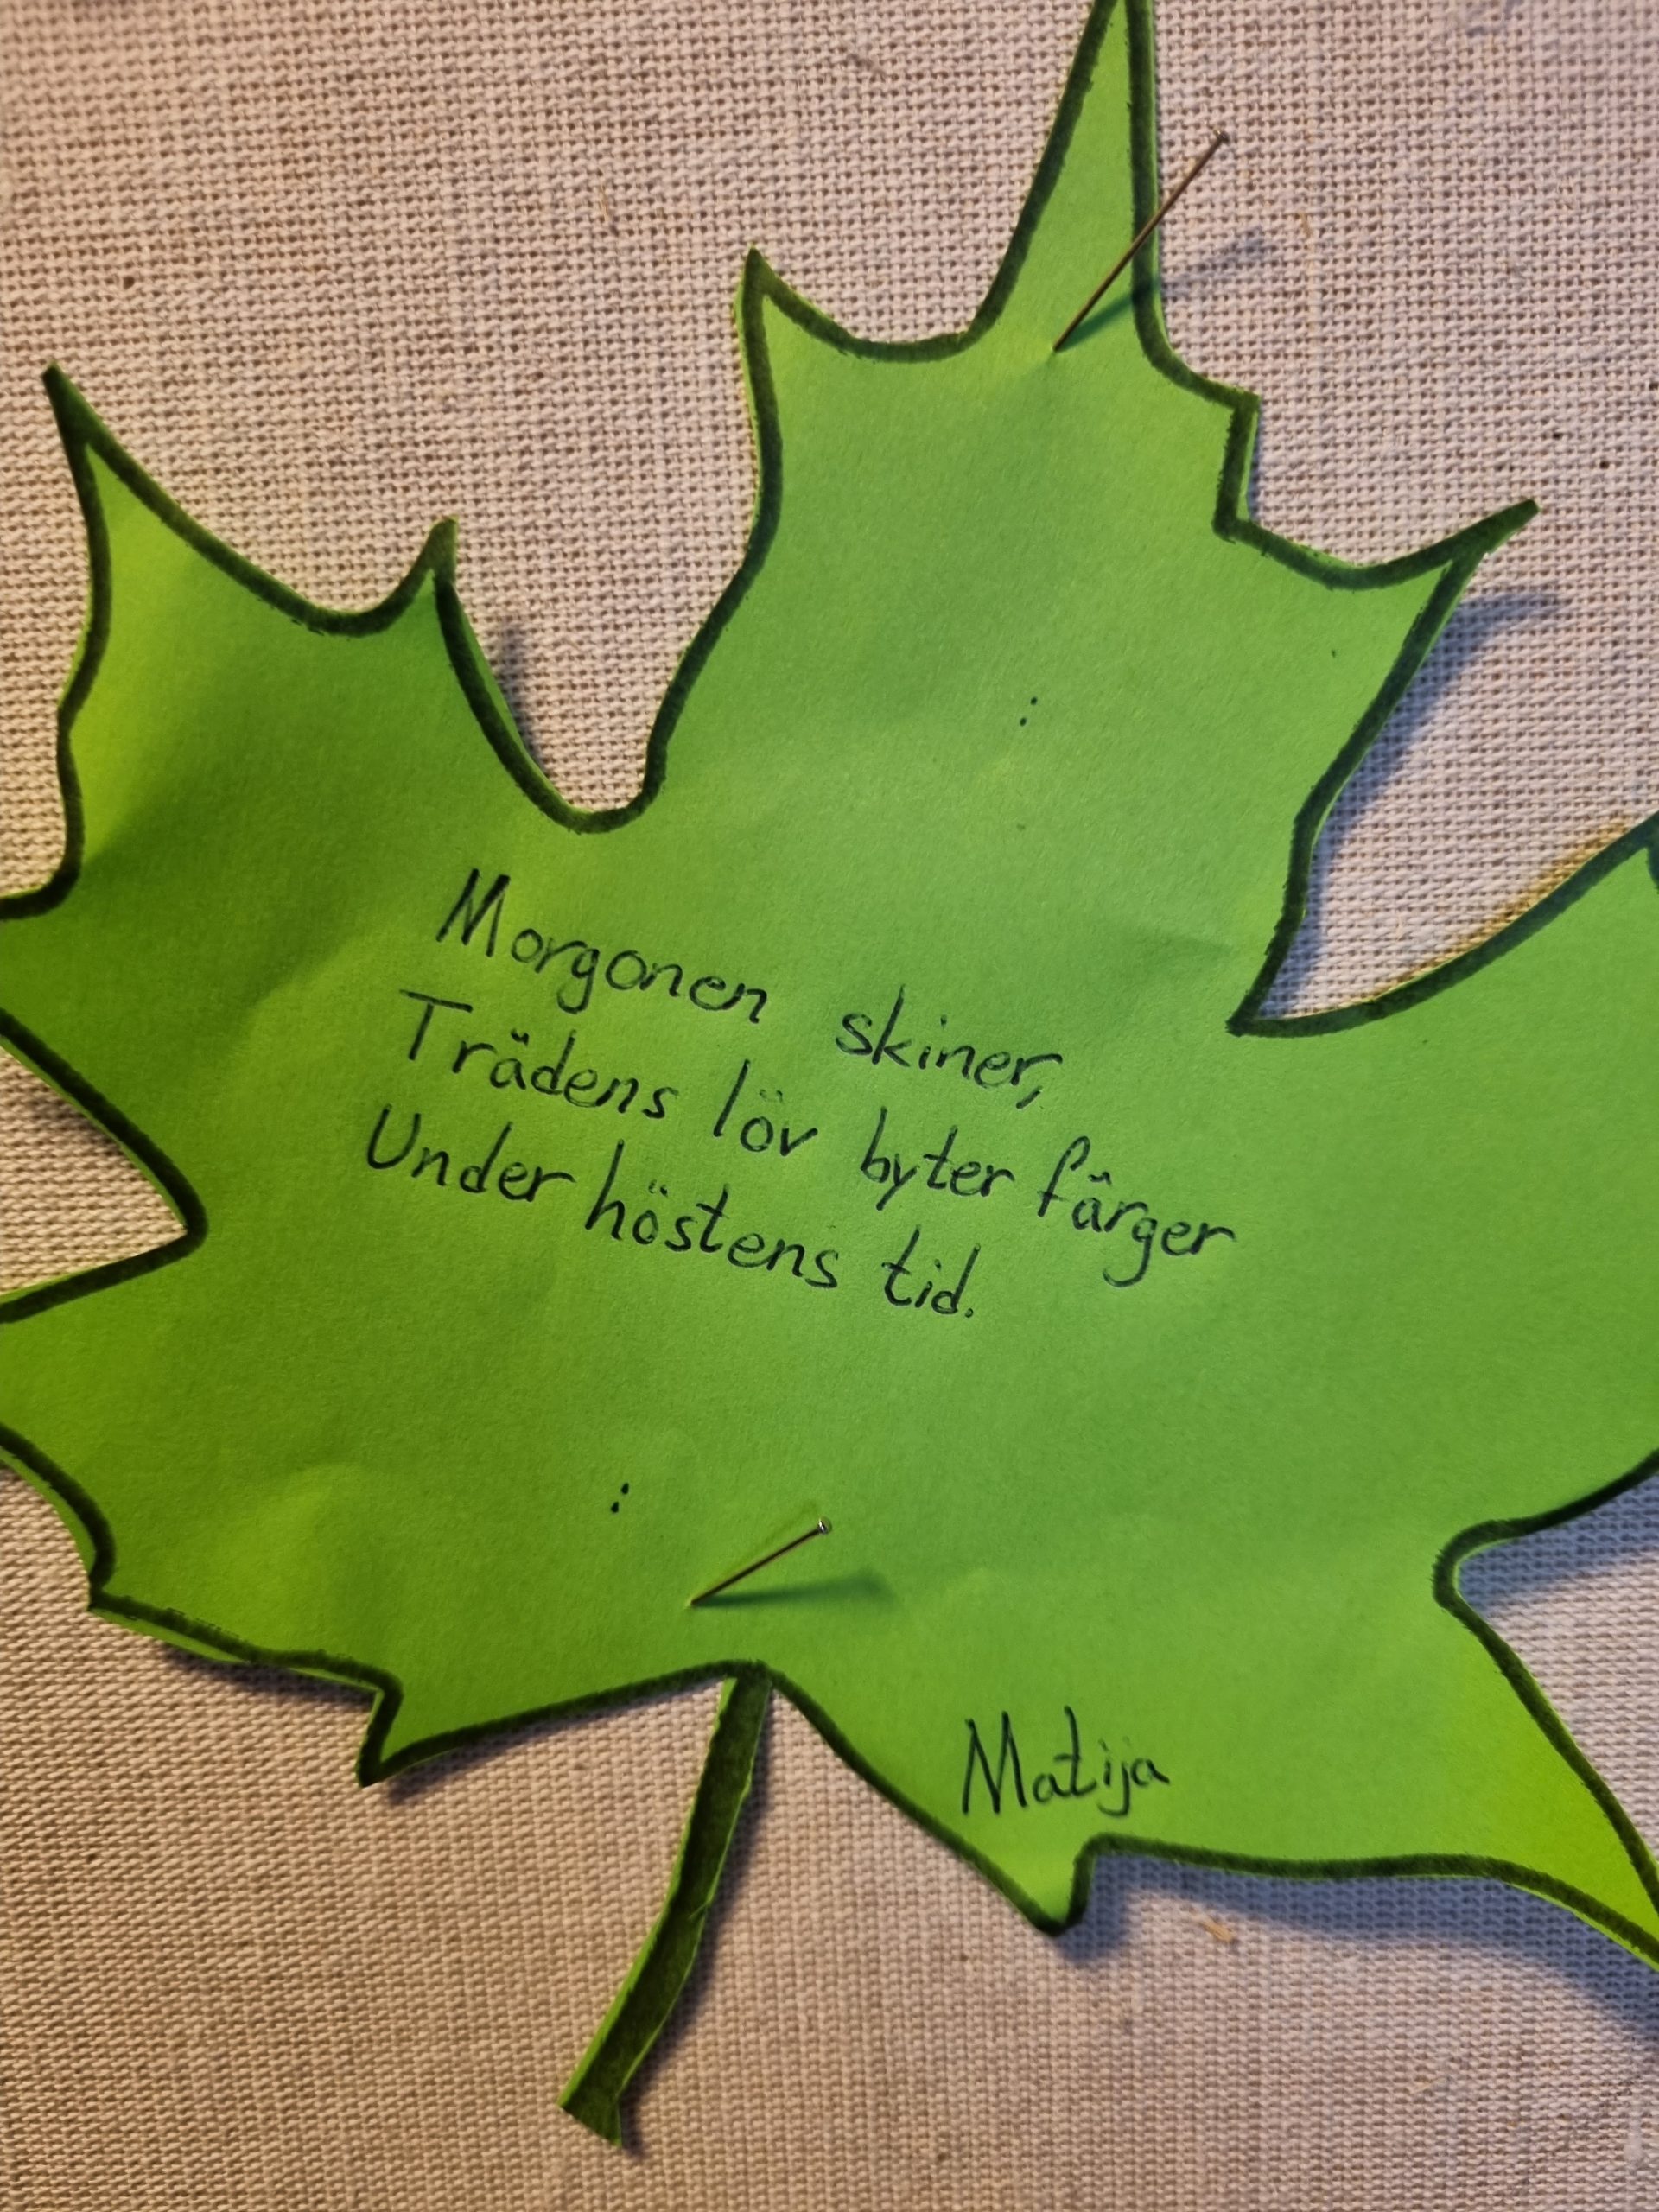 Morgonen skiner,
Trädens löv byter färger
Under höstens tid.
Matija